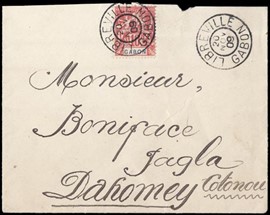 LIBREVILLE GABON
GABON
LIBREVILLE GABON
20
09
Monsieur,
Boniface
Jagla
Dahomey Cotonou